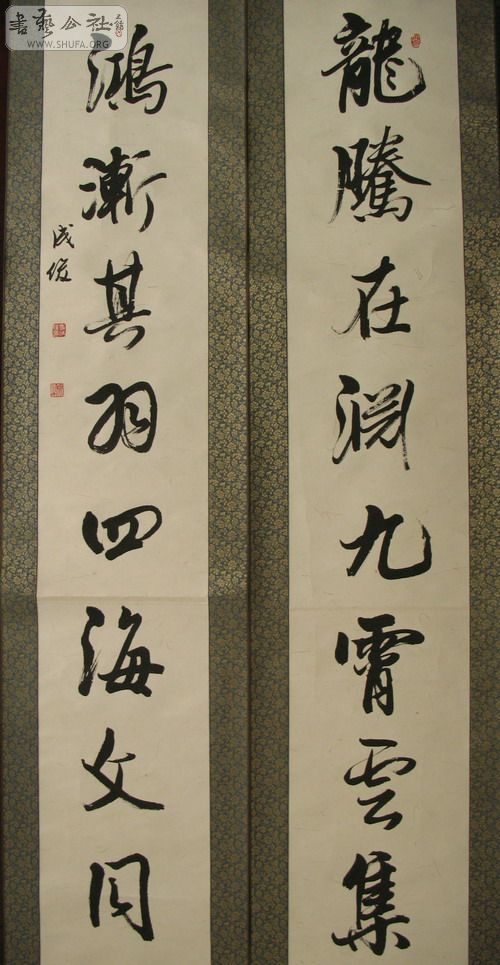 龍騰在淵九霄雲集
鴻漸其羽四海文同
成俊
書藝公社
www.SHUFA.ORG